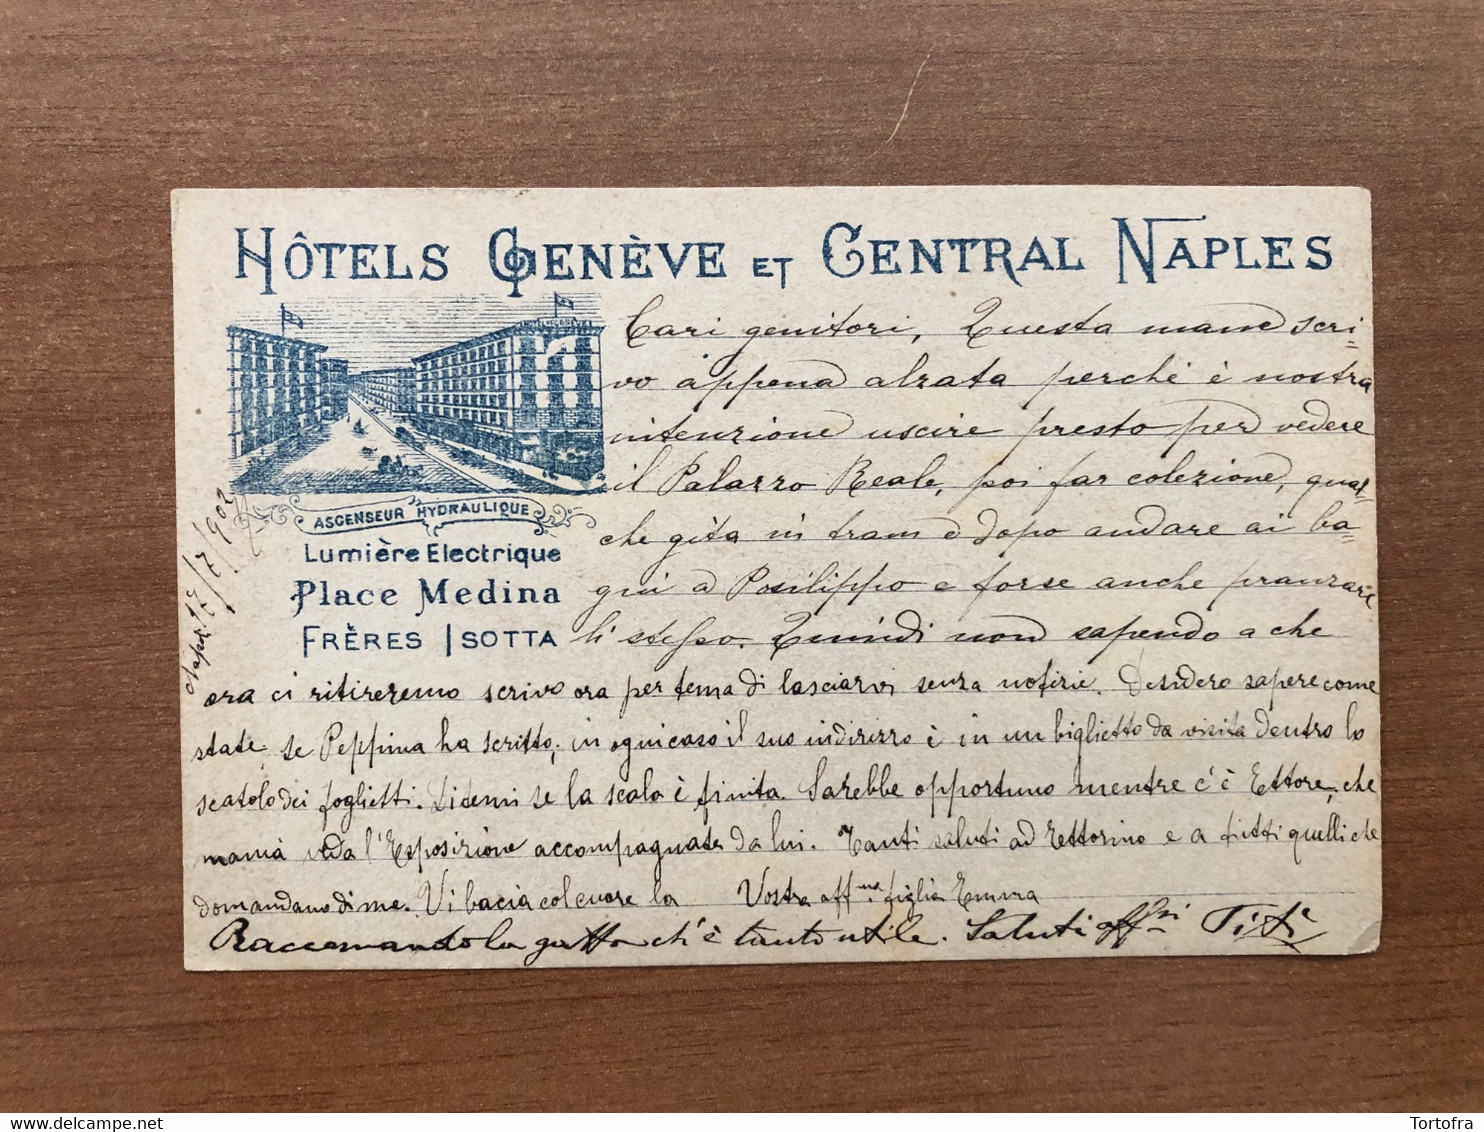 HÔTELS GENÈVE ET CENTRAL NAPLES
ASCENSEUR HYDRAULIQUE
Lumière Electrique
Place Medina
FRÈRES ISOTTA
Napoli 17/7/902
Cari genitori, Questa mane scri=
vo appena alzata perchè è nostra
intenzione uscire presto per vedere
il Palazzo Reale, poi far colezione, qual=
che gita in tram e dopo andare ai ba=
gni a Posilippo e forse anche pranzare
lì stesso. Quindi non sapendo a che
ora ci ritireremo scrivo ora per tema di lasciarvi senza notizie. Desidero sapere come
state, se Peppina ha scritto; in ogni caso il suo indirizzo è in un biglietto da visita dentro lo
scatolo dei foglietti. Ditemi se la scala è finita. Sarebbe opportuno mentre c'è Ettore, che
mamà veda l'Esposizione accompagnata da lui. Tanti saluti ad Ettorino e a tutti quelli che
domandano di me. Vi bacia col cuore la Vostra aff.ma figlia Emma
Raccomando la gatta ch'è tanto utile. Saluti affsi Titì
Tortofra